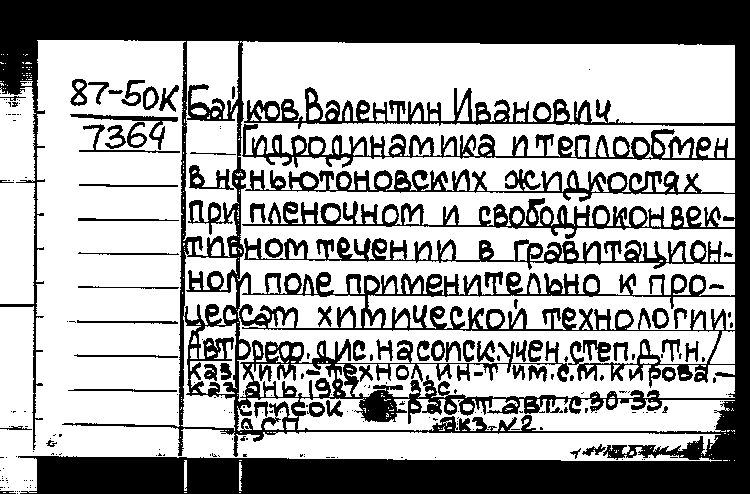 87-50К
7364
Байков, Валентин Иванович.
Гидродинамика и теплообмен
в неньютоновских жидкостях
при пленочном и свободноконвек-
тивном течении в гравитацион-
ном поле применительно к про-
цессам химической технологии:
Автореф. дис. на соиск. учен. степ. д.т.н./
Каз. хим.-технол. ин-т им. С.М. Кирова.-
Казань, 1987. - 33с.
Список работ авт.: с. 30-33.
ДСП. экз. №2.